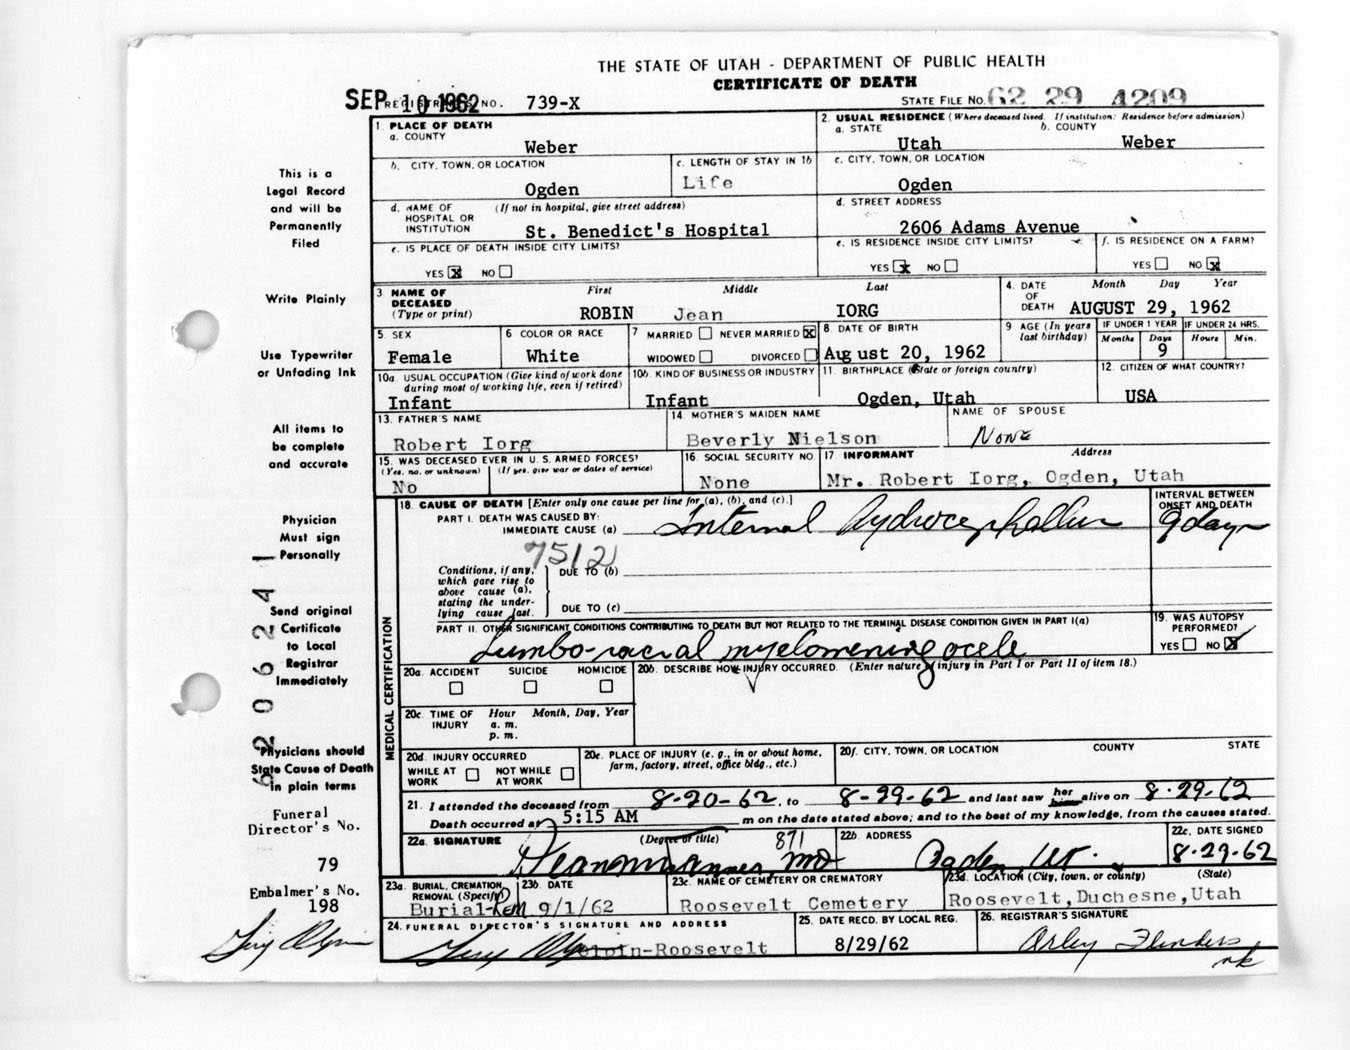 THE STATE OF UTAH - DEPARTMENT OF PUBLIC HEALTH
CERTIFICATE OF DEATH
SEP 10 1962 REGISTRAR'S NO. 739-X STATE FILE NO. 62 29 4209
This is a
Legal Record
and will be
Permanently
Filed
Write Plainly
Use Typewriter
or Unfading Ink
All items to
be complete
and accurate
Physician
Must sign
Personally
Send original
Certificate
to Local
Registrar
Immediately
Physicians should
State Cause of Death
in plain terms
Funeral
Director's No.
79
Embalmer's No.
198
1. PLACE OF DEATH
a. COUNTY
Weber
2. USUAL RESIDENCE (Where deceased lived. If institution: Residence before admission)
a. STATE b. COUNTY
Utah Weber
b. CITY, TOWN, OR LOCATION
Ogden
c. LENGTH OF STAY IN 1b
Life
c. CITY, TOWN, OR LOCATION
Ogden
d. NAME OF HOSPITAL OR INSTITUTION (If not in hospital, give street address)
St. Benedict's Hospital
d. STREET ADDRESS
2606 Adams Avenue
e. IS PLACE OF DEATH INSIDE CITY LIMITS?
YES X NO
e. IS RESIDENCE INSIDE CITY LIMITS?
YES X NO
f. IS RESIDENCE ON A FARM?
YES NO X
3. NAME OF DECEASED (Type or print) First Middle Last
ROBIN Jean IORG
4. DATE OF DEATH Month Day Year
AUGUST 29, 1962
5. SEX
Female
6 COLOR OR RACE
White
7 MARRIED NEVER MARRIED X
WIDOWED DIVORCED
8. DATE OF BIRTH
Aug ust 20, 1962
9 AGE (In years last birthday) IF UNDER 1 YEAR IF UNDER 24 HRS.
Months Days Hours Min.
9
10a. USUAL OCCUPATION (Give kind of work done during most of working life, even if retired)
Infant
10b. KIND OF BUSINESS OR INDUSTRY
Infant
11. BIRTHPLACE (State or foreign country)
Ogden, Utah
12. CITIZEN OF WHAT COUNTRY?
USA
13. FATHER'S NAME
Robert Iorg
14. MOTHER'S MAIDEN NAME
Beverly Nielson
NAME OF SPOUSE
None
15. WAS DECEASED EVER IN U. S. ARMED FORCES?
(Yes, no, or unknown) (If yes, give war or dates of service)
No
16. SOCIAL SECURITY NO.
None
17 INFORMANT Address
Mr. Robert Iorg, Ogden, Utah
MEDICAL CERTIFICATION
18. CAUSE OF DEATH [Enter only one cause per line for (a), (b), and (c).]
PART I. DEATH WAS CAUSED BY:
IMMEDIATE CAUSE (a) Internal hydrocephallus
INTERVAL BETWEEN ONSET AND DEATH
9 days
7512
Conditions, if any, which gave rise to above cause (a), stating the underlying cause last.
DUE TO (b)
DUE TO (c)
PART II. OTHER SIGNIFICANT CONDITIONS CONTRIBUTING TO DEATH BUT NOT RELATED TO THE TERMINAL DISEASE CONDITION GIVEN IN PART I(a)
Lumbo-sacral myelomeningocele
19. WAS AUTOPSY PERFORMED?
YES NO X
20a. ACCIDENT SUICIDE HOMICIDE
20b. DESCRIBE HOW INJURY OCCURRED. (Enter nature of injury in Part I or Part II of item 18.)
20c. TIME OF INJURY Hour Month, Day, Year
a. m.
p. m.
20d. INJURY OCCURRED
WHILE AT WORK NOT WHILE AT WORK
20e. PLACE OF INJURY (e. g., in or about home, farm, factory, street, office bldg., etc.)
20f. CITY, TOWN, OR LOCATION COUNTY STATE
21. I attended the deceased from 8-20-62, to 8-29-62 and last saw her him alive on 8-29-62
Death occurred at 5:15 AM m on the date stated above; and to the best of my knowledge, from the causes stated.
22a. SIGNATURE (Degree or title) 871
MD
22b. ADDRESS
Ogden, Ut.
22c. DATE SIGNED
8-29-62
23a. BURIAL, CREMATION, REMOVAL (Specify)
Burial-Rem
23b. DATE
9/1/62
23c. NAME OF CEMETERY OR CREMATORY
Roosevelt Cemetery
23d. LOCATION (City, town, or county) (State)
Roosevelt, Duchesne, Utah
24. FUNERAL DIRECTOR'S SIGNATURE AND ADDRESS
-Roosevelt
25. DATE RECD. BY LOCAL REG.
8/29/62
26. REGISTRAR'S SIGNATURE
Arley Flinders
nk